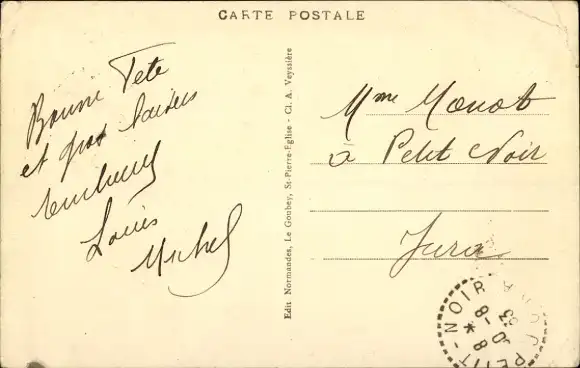 CARTE POSTALE
Bonne Fete
et gros baisers
Louis
Michel
Edit Normandes, Le Goubey, St-Pierre-Eglise - Cl. A. Veyssière
Mme Monot
à Petit Noir
Jura
PETIT-NOIR
8-8
33
JURA